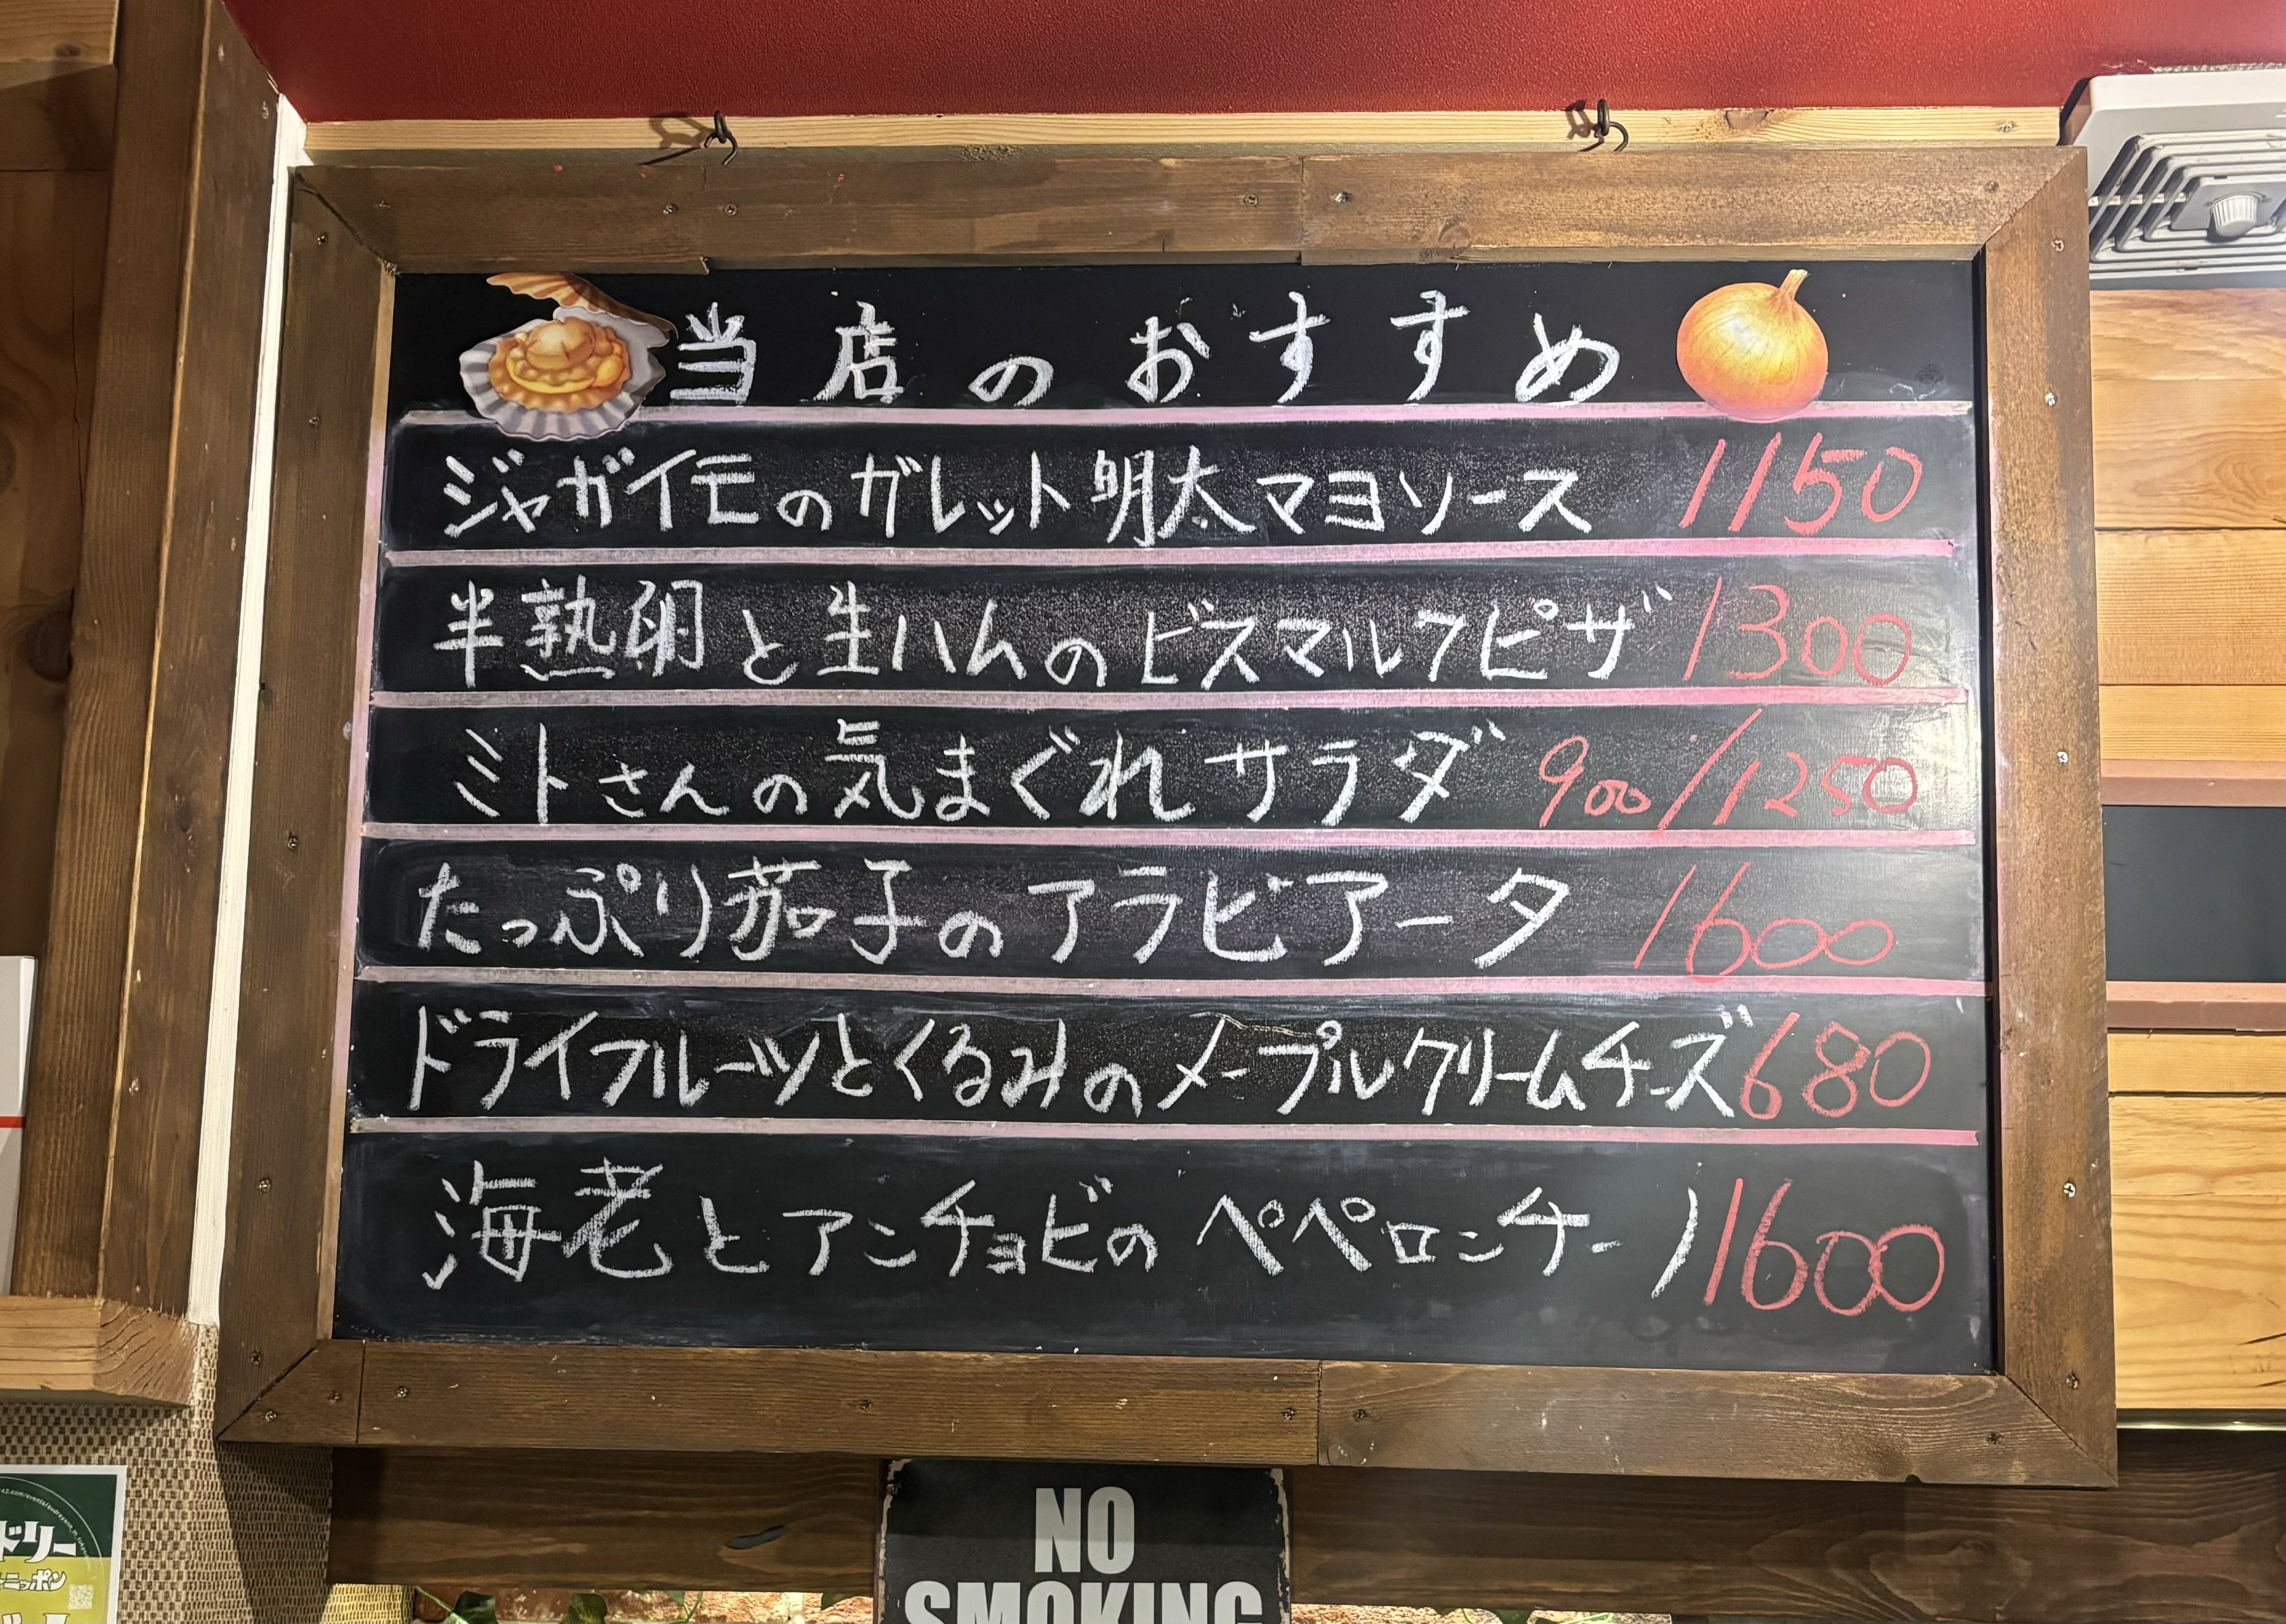 当店のおすすめ
ジャガイモのガレット明太マヨソース 1150
半熟卵と生ハムのビスマルクピザ 1300
ミトさんの気まぐれサラダ 900/1250
たっぷり茄子のアラビアータ 1600
ドライフルーツとくるみのメープルクリームチーズ 680
海老とアンチョビのペペロンチーノ 1600
NO
SMOKING
ドリー
ニッポン